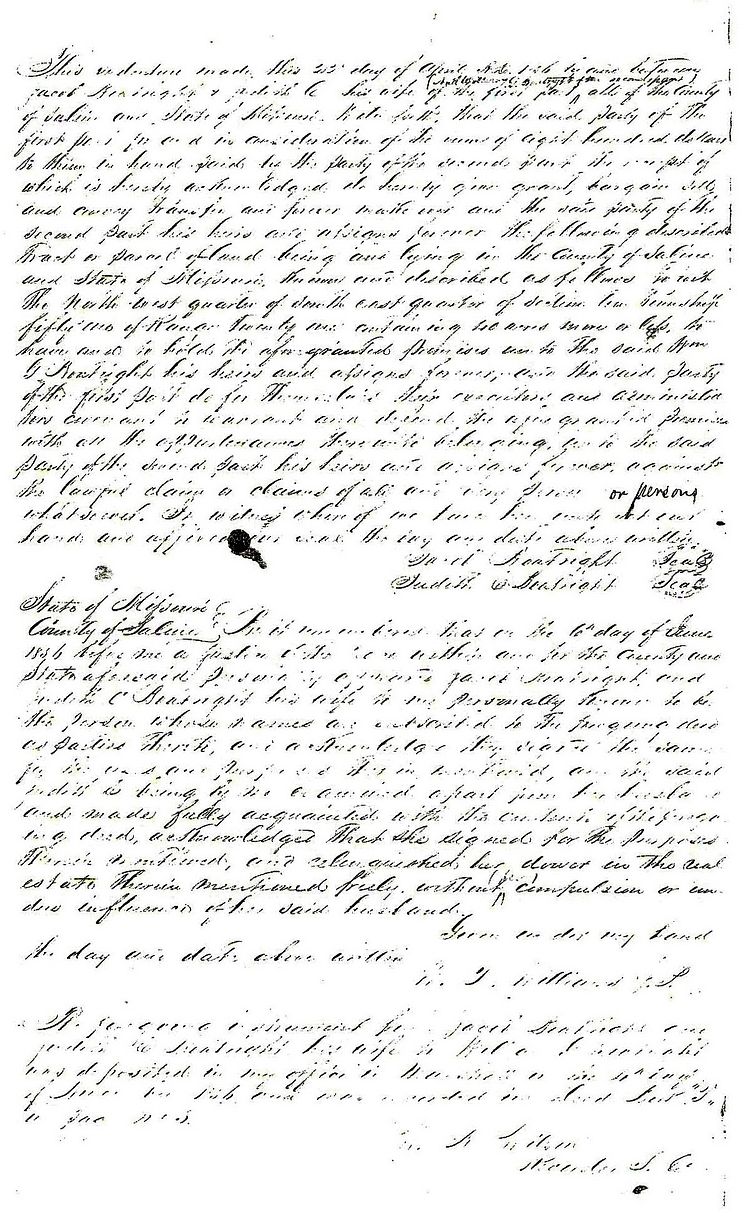 This indenture made this 22d day of April A.D. 1856 by and between
Jacob Boatright & Judith C his wife of the first part all of the County
of Saline and State of Missouri. Witnesseth, that the said party of the
first part for and in consideration of the sum of eight hundred dollars
to them in hand paid by the party of the second part the receipt of
which is hereby acknowledged do hereby give grant, bargain sell
and convey transfer and forever make over unto the said party of the
second part his heirs and assigns forever the following described
tract or parcel of land being and lying in the County of Saline
and State of Missouri, known and described as follows to wit
The North west quarter of south east quarter of section ten Township
fifty two of Range twenty one containing 40 acres more or less, to
have and to hold the afore granted premises unto the said Wm
J Boatright his heirs and assigns forever, and the said party
of the first part do for themselves their executors and administra
tors covenant to warrant and defend the afore granted premises
with all the appurtenances thereunto belonging, unto the said
party of the second part his heirs and assigns forever, against
the lawful claim or claims of all and every person or persons
whatsoever. In witness whereof we have here unto set our
hands and affixed our seals the day and date above written
Jacob Boatright Seal
Judith C Boatright Seal
State of Missouri
County of Saline Be it remembered that on the 6th day of June
1856 before me a Justice of the Peace within and for the County and
State aforesaid personally appeared Jacob Boatright and
Judith C Boatright his wife to me personally known to be
the person whose names are subscribed to the foregoing deed
as parties thereto, and acknowledge they signed the same
for the uses and purposes therein mentioned, and the said
Judith C being by me examined apart from her husband
and made fully acquainted with the contents of the forego
ing deed, acknowledged that she signed for the purposes
therein mentioned, and relinquished her dower in the real
estate therein mentioned freely, without compulsion or un
due influence of her said husband
Given under my hand
the day and date above written
Williams J.P.
The foregoing instrument from Jacob Boatright and
Judith C Boatright his wife to Boatright
was deposited in my office in Marshall on the 10th day
of June 1856 and was recorded in deed book
Wilson
Recorder S. Co